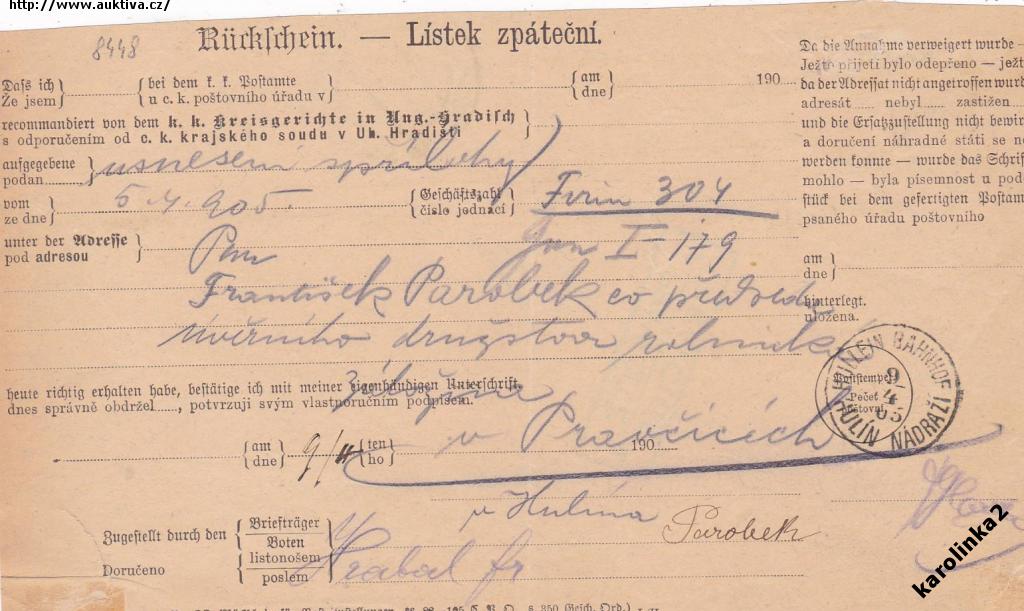 http://www.auktiva.cz/
8448
Rückschein. — Lístek zpáteční.
Daß ich
Že jsem
bei dem k. k. Postamte
u c. k. poštovního úřadu v
am
dne
190
recommandiert von dem k. k. Kreisgerichte in Ung.-Hradisch
s odporučením od c. k. krajského soudu v Uh. Hradišti
aufgegebene
podan
usnesení s přílohy
vom
ze dne
5.4.905.
Geschäftszahl
číslo jednací
Firm 304
unter der Adresse
pod adresou
I-179
Pan
František Parobek co předseda
úvěrního družstva rolnické
záložny
v Pravčicích
u Hulína
heute richtig erhalten habe, bestätige ich mit meiner eigenhändigen Unterschrift.
dnes správně obdržel, potvrzuji svým vlastnoručním podpisem.
am
dne
9/4
ten
ho
190
Parobek
Zugestellt durch den
Doručeno
Briefträger
Boten
listonošem
poslem
Hrabal fr
Da die Annahme verweigert wurde —
Ježto přijetí bylo odepřeno — ježt
da der Adressat nicht angetroffen wurd
adresát nebyl zastižen
und die Ersatzzustellung nicht bewir
a doručení náhradné státi se ne
werden konnte — wurde das Schrif
mohlo — byla písemnost u pod
stück bei dem gefertigten Postam
psaného úřadu poštovního
am
dne
hinterlegt.
uložena.
Poststempel
Pečeť
poštovní
HULLEIN BAHNHOF
9/4 05
HULÍN NÁDRAŽÍ
karolinka2